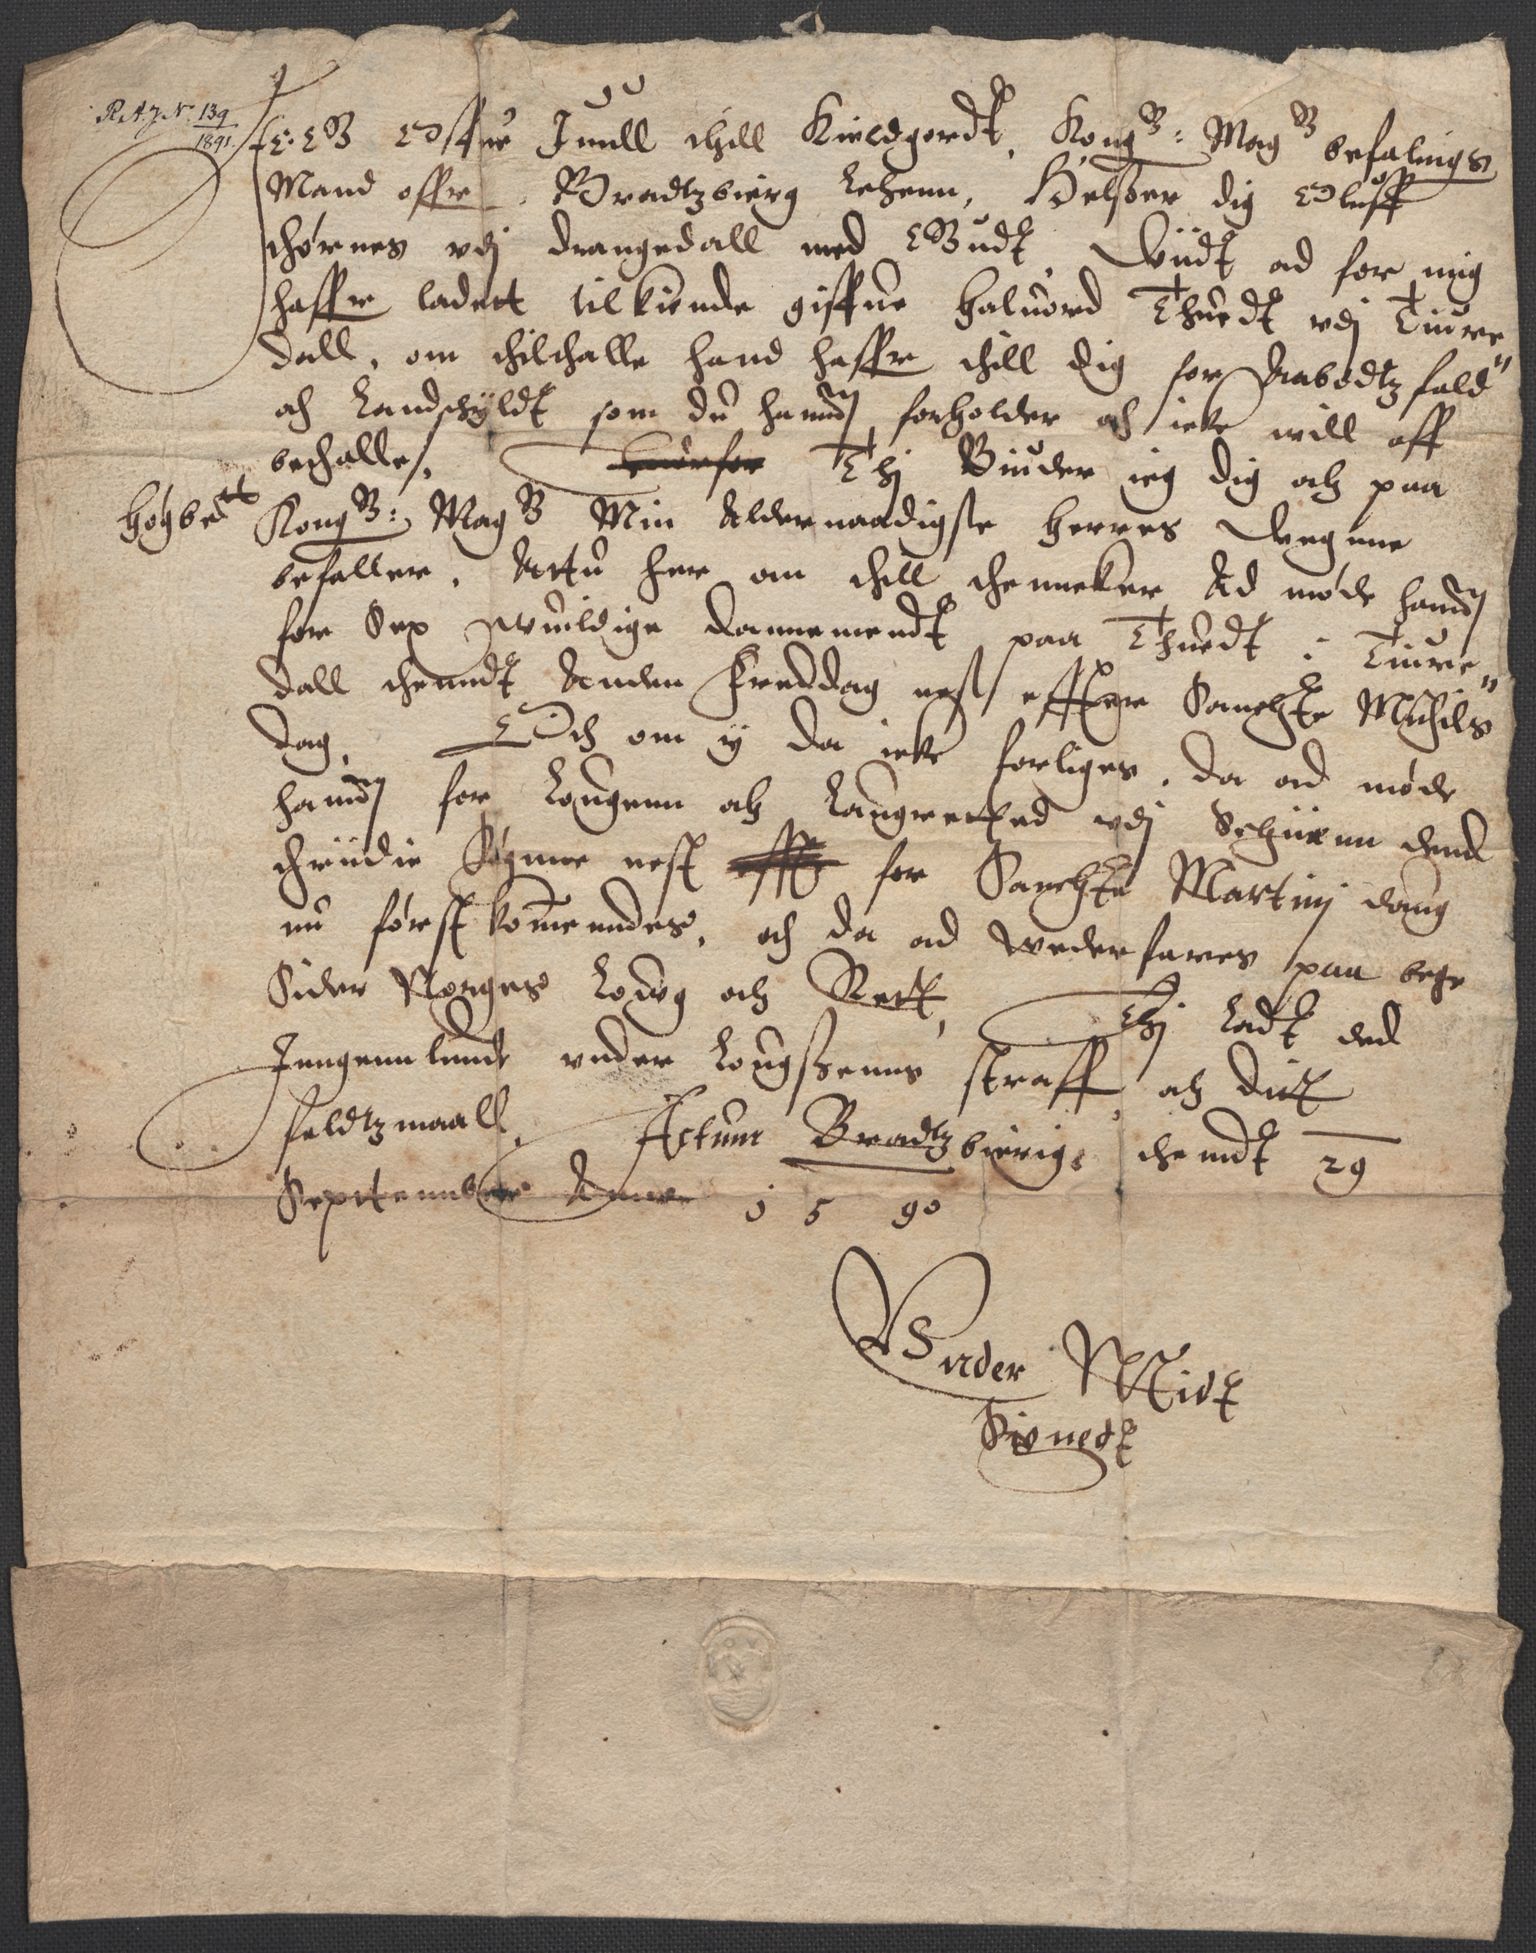 R.A.J.N. 139/1891.
Offue Juell thill Kieldgordt, Kong: Mag: befalings
Mand offr Bradtzbierg Lehenn, Helser dig Oluff
thørnes vdj drangedall med Gudt, Viidt ad for mig
haffr ladett tilkiende giffue Haluord Thuedt vdj Tiuree
dall, om thilthalle hand haffr thill dig for Aabødtz fald
och Landschyldt som du hannom forholder och icke will aff
bethalle,
Thj Biuder ieg dig och paa
Høgbete
Kong: Mag: Min Aldernaadigste Herres Vegnne
befaller, Attu her om thill thencker Ad møde hannom
for Sex wuildige dannemendt paa Thuedt i Tiuree
dall thenndt Anden Freddag nest effter Sancte Michils
dag, Och om y da icke forliges, da ad møde
hannom for Lougenn och Laugretted vdj Schiienn dend
thriidie Søgnne nest for Sancte Martinj daug
nu først kommendes, och da ad wederfares paa bege
Sider Norges Loug och Rett, Thj Ladt ded
Inngennlunde vnder Lougszenns straff och ditt
faldtzmaall, Actum Bradtzbierig thendt 29
Septtember Anno 1590
Vnder Midt
Signedt